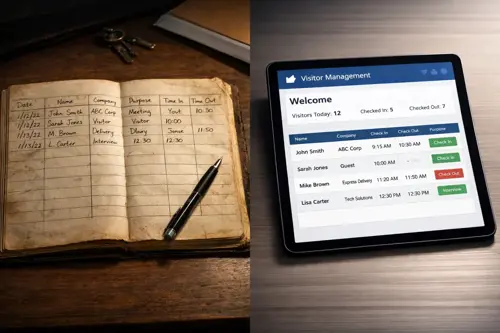 Date Name Company Purpose Time In Time Out
1/12/22 John Smith ABC Corp Meeting Yout 10:30
1/12/22 Sarah Jones Visitor Visitor 10:00
M. Brown Delivery Dlary Jense 11:50
1/13/22 L. Carter Interview 12:30 12:30
Visitor Management
Welcome
Visitors Today: 12 Checked In: 5 Checked Out: 7
Name Company Check In Check Out Purpose
John Smith ABC Corp 9:15 AM 10:30 AM Check In
Sarah Jones Guest 10:00 AM Check In
Mike Brown Express Delivery 11:20 AM 11:50 AM Check Out
Lisa Carter Tech Solutions 12:30 PM 12:30 PM